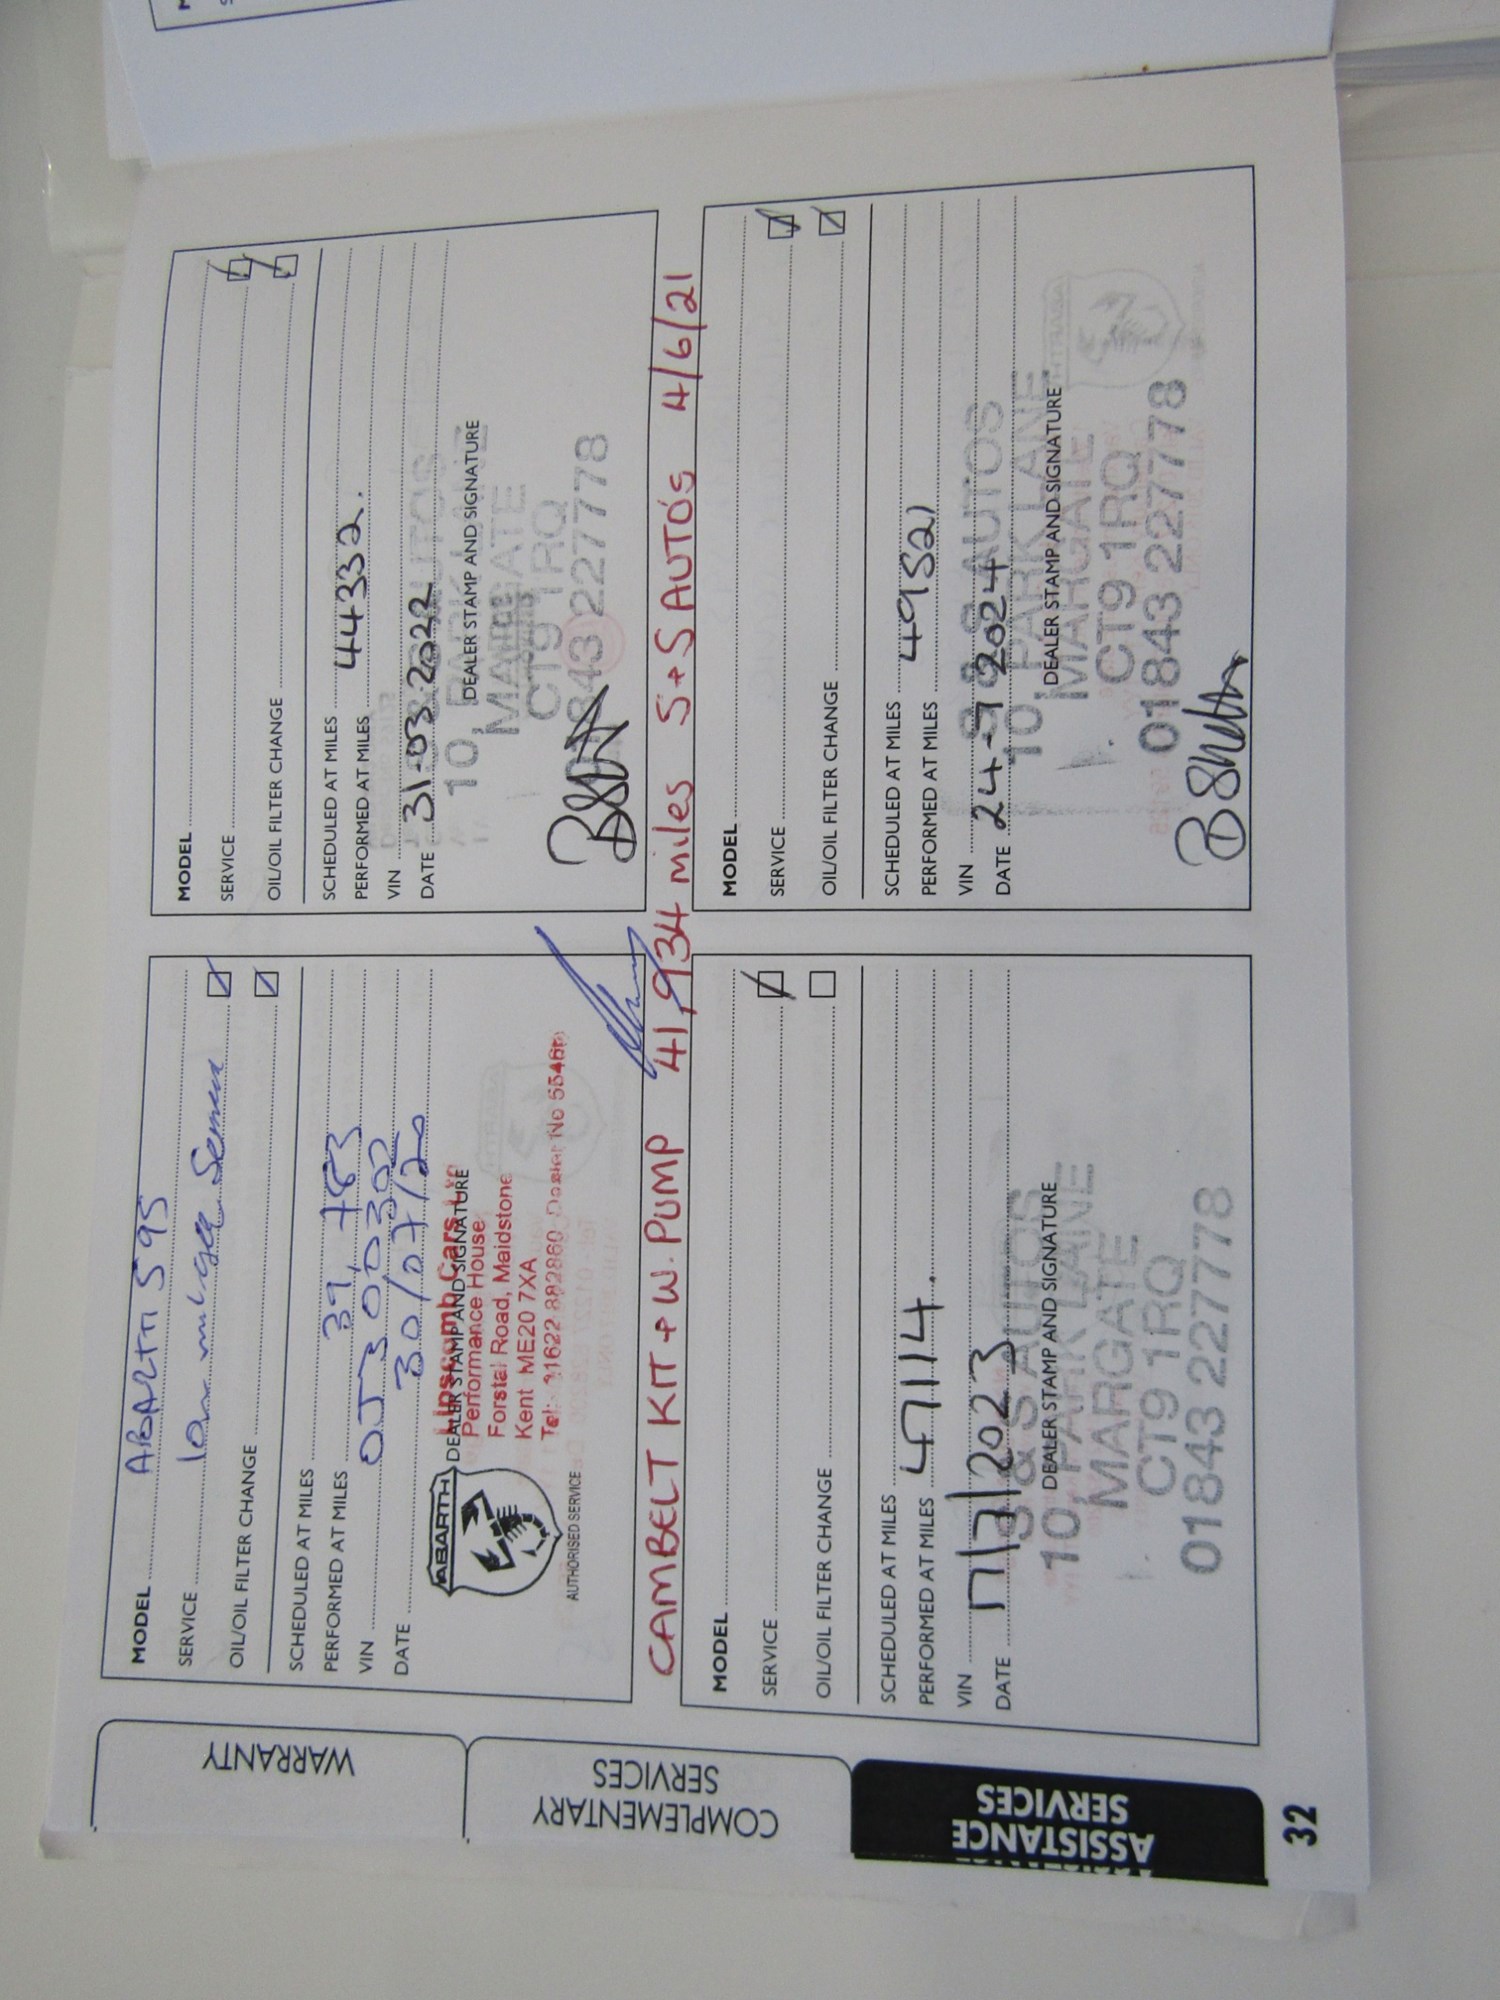 MODEL ABARTH 595
SERVICE 10m
OIL/OIL FILTER CHANGE
SCHEDULED AT MILES
PERFORMED AT MILES 39,783
VIN 0J300302
DATE 30/07/20
DEALER STAMP AND SIGNATURE
ABARTH
AUTHORISED SERVICE
Lipscomb Cars
Performance House
Forstal Road, Maidstone
Kent ME20 7XA
Tel: 01622 882860 Dealer No
MODEL
SERVICE
OIL/OIL FILTER CHANGE
SCHEDULED AT MILES
PERFORMED AT MILES 44332.
VIN
DATE 31-03-2022
DEALER STAMP AND SIGNATURE
10, PARK LANE
MARGATE
CT9 1RQ
01843 227778
CAMBELT KIT + W. PUMP 41,934 miles S+S AUTO'S 4/6/21
MODEL
SERVICE
OIL/OIL FILTER CHANGE
SCHEDULED AT MILES
PERFORMED AT MILES 47114.
VIN
DATE 17/7/2023
DEALER STAMP AND SIGNATURE
S & S AUTOS
10, PARK LANE
MARGATE
CT9 1RQ
01843 227778
MODEL
SERVICE
OIL/OIL FILTER CHANGE
SCHEDULED AT MILES
PERFORMED AT MILES 49521
VIN
DATE 24-7-2024
DEALER STAMP AND SIGNATURE
S & S AUTOS
10, PARK LANE
MARGATE
CT9 1RQ
01843 227778
WARRANTY
COMPLEMENTARY
SERVICES
ASSISTANCE
SERVICES
32